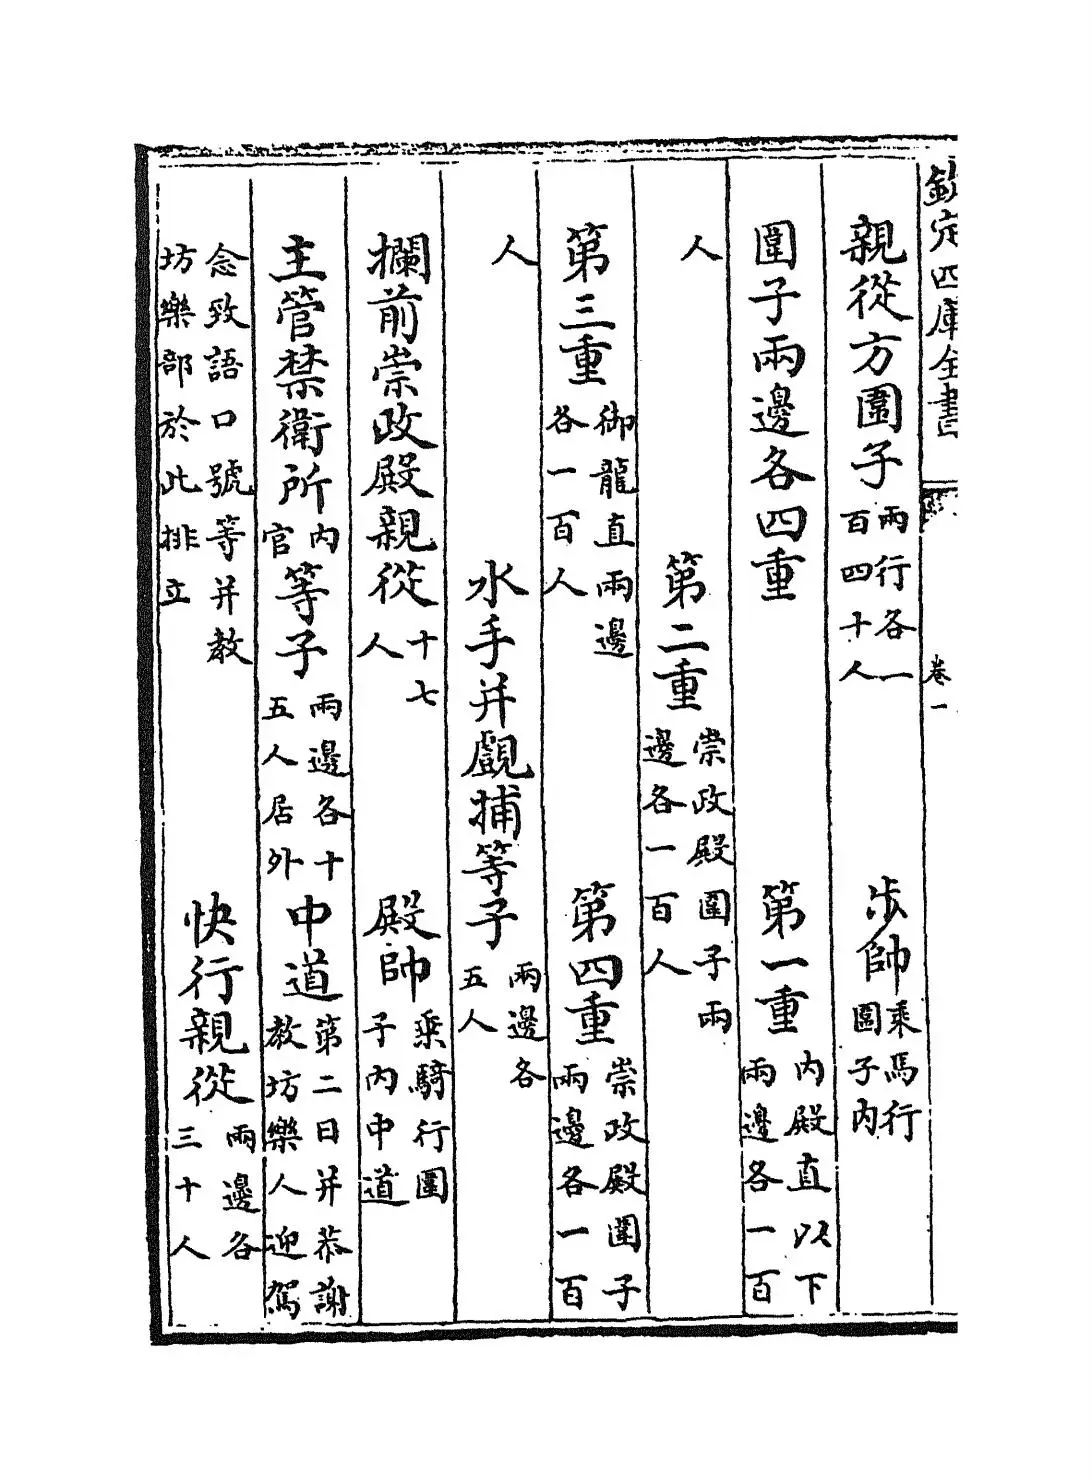 欽定四庫全書 卷一
親從方圍子兩行各一百四十人 步帥乘馬行圍子内
圍子兩邊各四重 第一重内殿直以下兩邊各一百
人 第二重崇政殿圍子兩邊各一百人
第三重御龍直兩邊各一百人 第四重崇政殿圍子兩邊各一百
人 水手并覰捕等子兩邊各五人
攔前崇政殿親從十七人 殿帥乗騎行圍子内中道
主管禁衛所内官等子兩邊各十五人居外 中道第二日并恭謝教坊樂人迎駕
念致語口號等并教坊樂部於此排立 快行親從兩邊各三十人